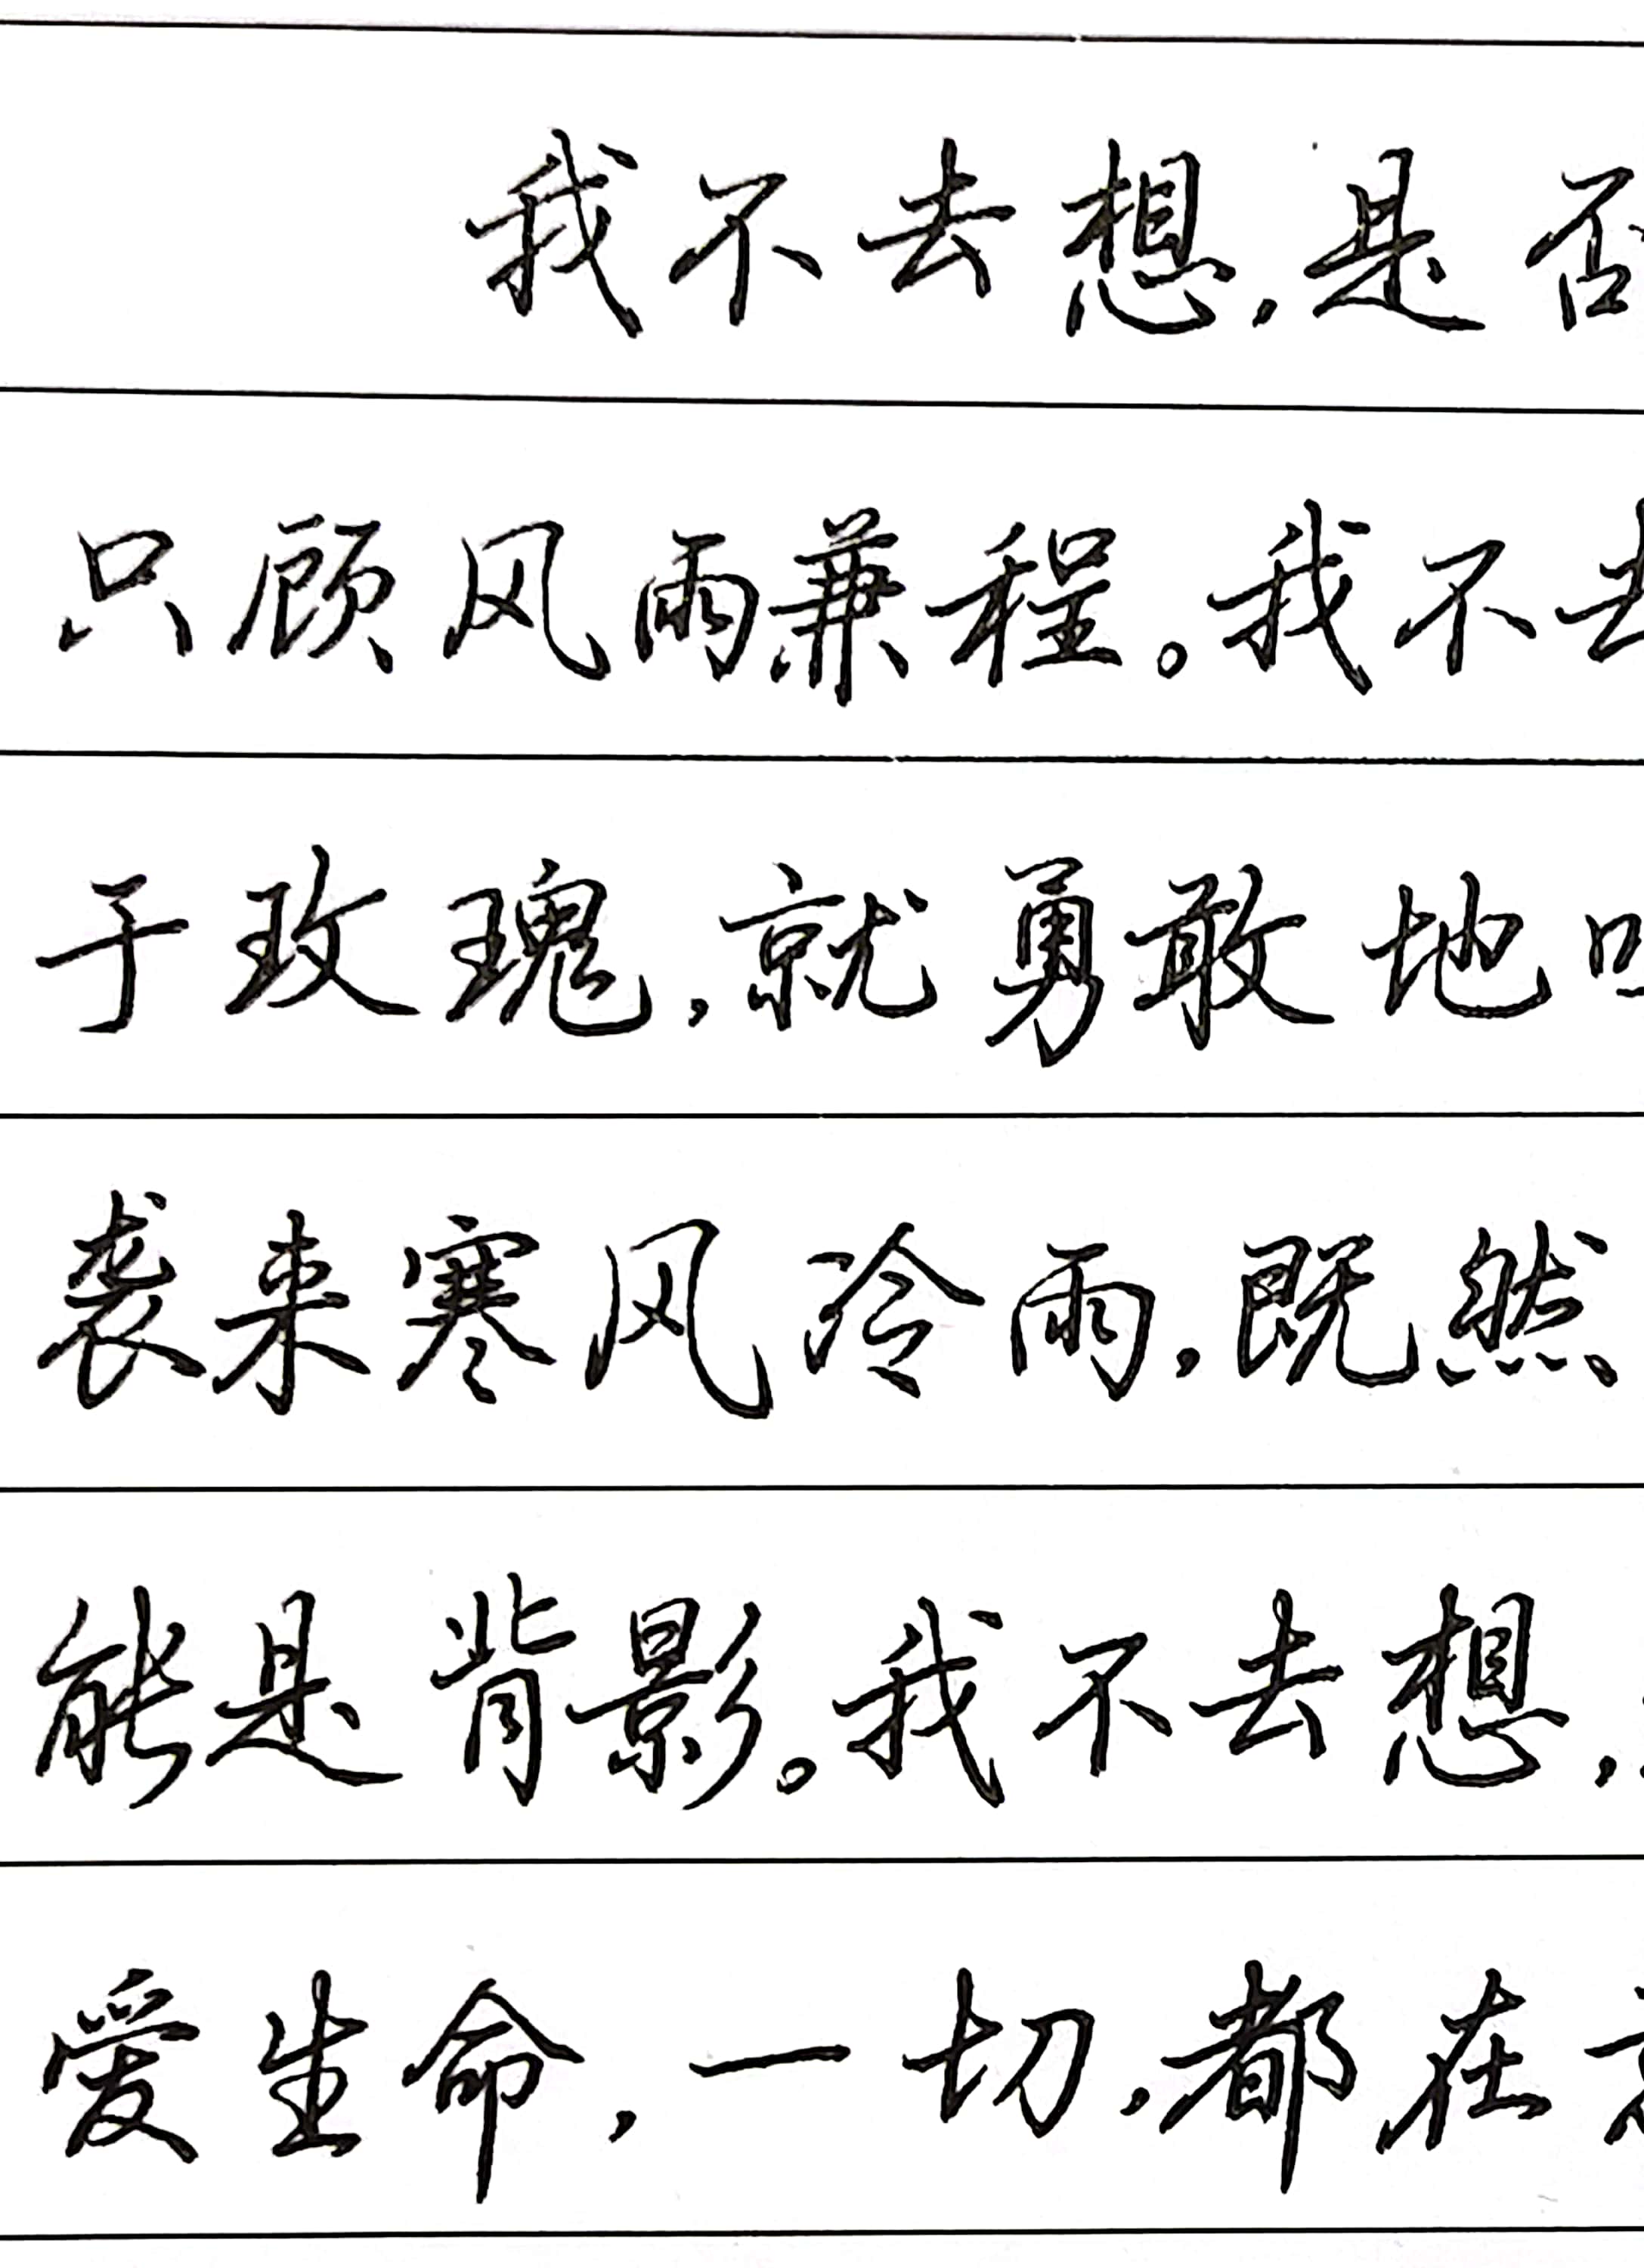 我不去想,是否
只顾风雨兼程。我不去
于玫瑰,就勇敢地吐
袭来寒风冷雨,既然
能是背影。我不去想,
爱生命,一切,都在意